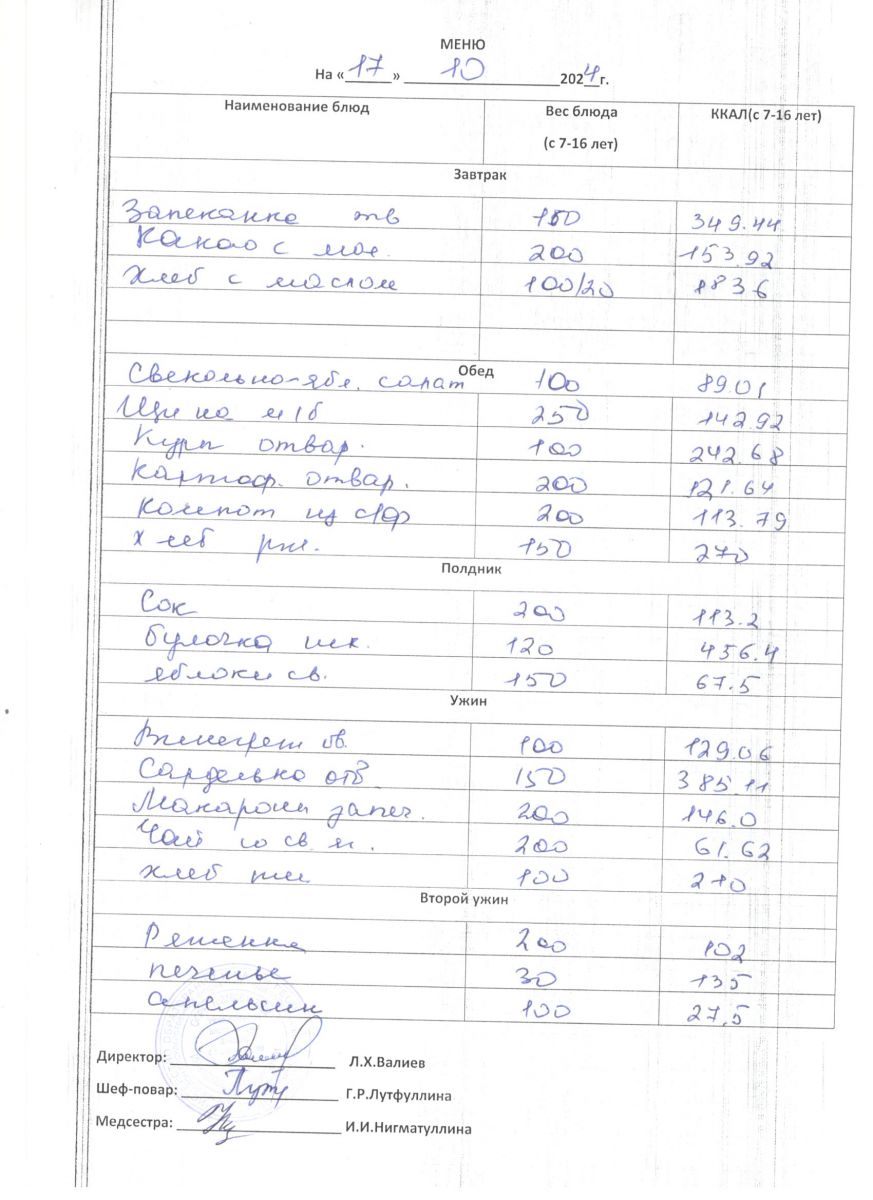 МЕНЮ
На «17» 10 2024 г.
Наименование блюд Вес блюда (с 7-16 лет) ККАЛ(с 7-16 лет)
Завтрак
Запеканка тв 150 349.44
Какао с мол. 200 153.92
Хлеб с маслом 100/20 183 6
Обед
Свекольно-ябл. салат 100 89.01
Щи на м/б 250 142.92
Куры отвар. 100 242.68
Картоф. отвар. 200 121.64
Компот из с/ф 200 113.79
Хлеб рж. 150 270
Полдник
Сок 200 113.2
булочка 120 456.4
яблоки св. 150 67.5
Ужин
Винегрет ов. 100 129.06
Сарделька отв 150 385.11
Макароны запеч. 200 146.0
Чай со св 200 61.62
хлеб пш 100 210
Второй ужин
Ряженка 200 102
печенье 30 135
апельсин 100 27,5
Директор: Л.Х.Валиев
Шеф-повар: Г.Р.Лутфуллина
Медсестра: И.И.Нигматуллина